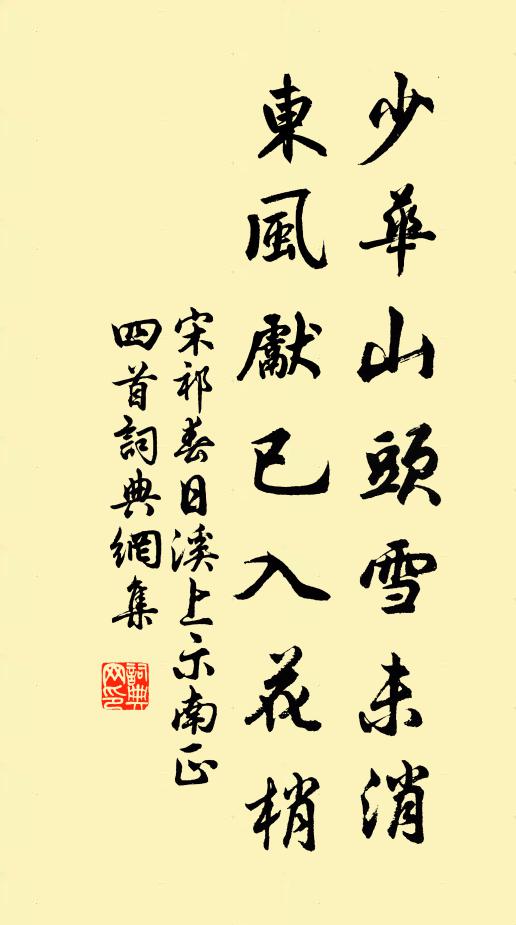 少華山頭雪未消
東風獻已入花梢
宋祁春日溪上示南正
四首詞典網集
詞典
网印